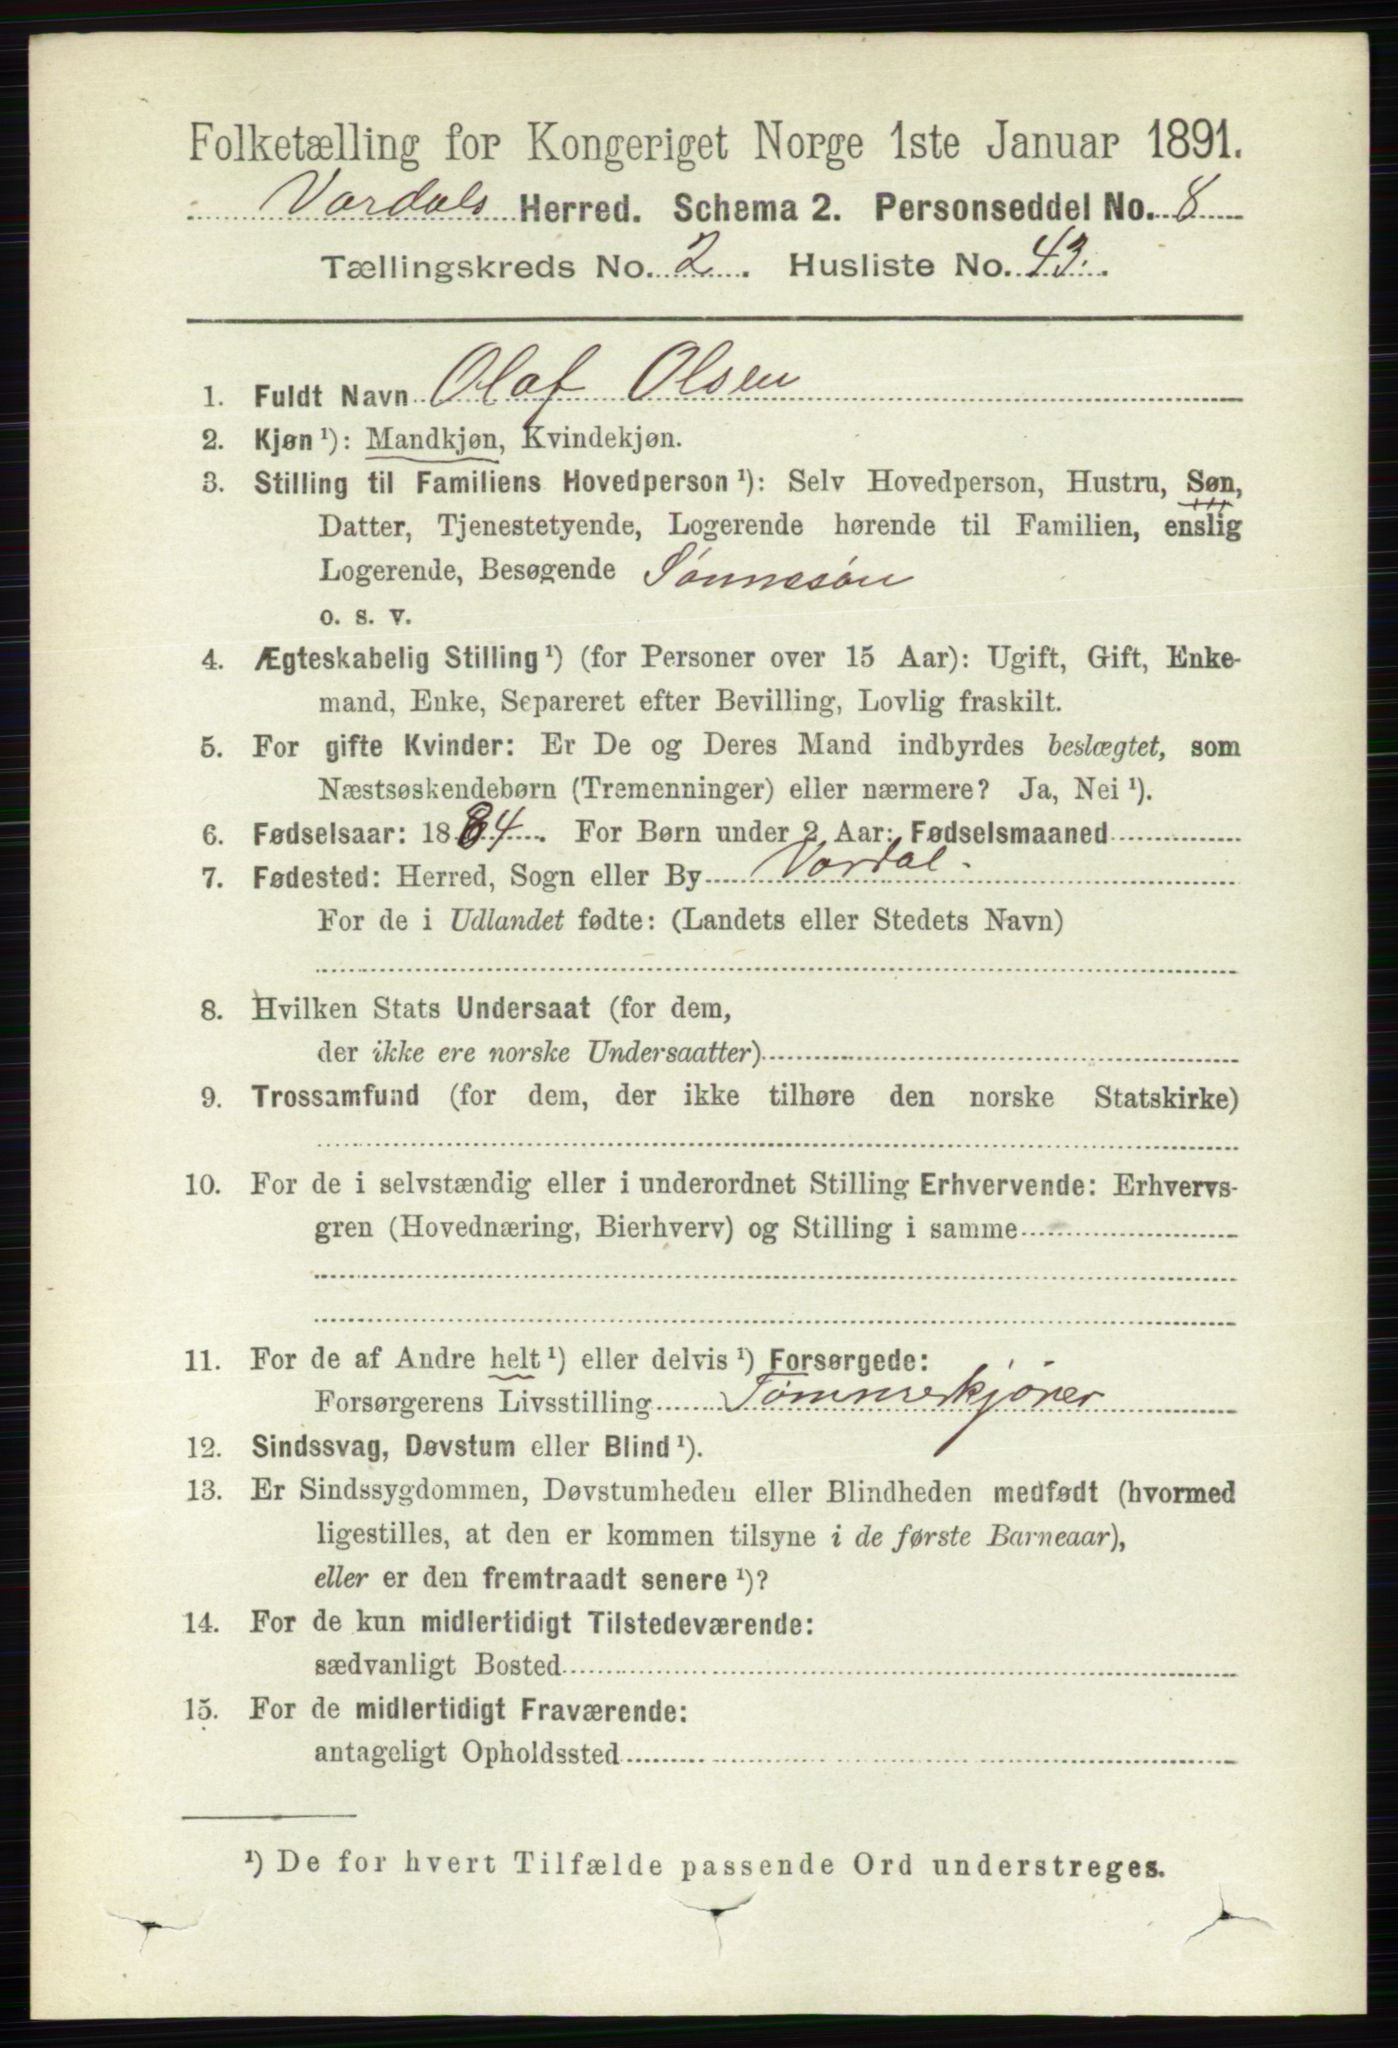 Folketælling for Kongeriget Norge 1ste Januar 1891.
Vardals Herred. Schema 2. Personseddel No. 8
Tællingskreds No. 2. Husliste No. 43.
1. Fuldt Navn Olaf Olsen
2. Kjøn ¹): Mandkjøn, Kvindekjøn.
3. Stilling til Familiens Hovedperson ¹): Selv Hovedperson, Hustru, Søn,
Datter, Tjenestetyende, Logerende hørende til Familien, enslig
Logerende, Besøgende Sønnesøn
o. s. v.
4. Ægteskabelig Stilling ¹) (for Personer over 15 Aar): Ugift, Gift, Enke-
mand, Enke, Separeret efter Bevilling, Lovlig fraskilt.
5. For gifte Kvinder: Er De og Deres Mand indbyrdes beslægtet, som
Næstsøskendebørn (Tremenninger) eller nærmere? Ja, Nei ¹).
6. Fødselsaar: 1884. For Børn under 2 Aar: Fødselsmaaned
7. Fødested: Herred, Sogn eller By Vardal.
For de i Udlandet fødte: (Landets eller Stedets Navn)
8. Hvilken Stats Undersaat (for dem,
der ikke ere norske Undersaatter)
9. Trossamfund (for dem, der ikke tilhøre den norske Statskirke)
10. For de i selvstændig eller i underordnet Stilling Erhvervende: Erhvervs-
gren (Hovednæring, Bierhverv) og Stilling i samme
11. For de af Andre helt ¹) eller delvis ¹) Forsørgede:
Forsørgerens Livsstilling Tømmerkjører
12. Sindssvag, Døvstum eller Blind ¹).
13. Er Sindssygdommen, Døvstumheden eller Blindheden medfødt (hvormed
ligestilles, at den er kommen tilsyne i de første Barneaar),
eller er den fremtraadt senere ¹)?
14. For de kun midlertidigt Tilstedeværende:
sædvanligt Bosted
15. For de midlertidigt Fraværende:
antageligt Opholdssted
¹) De for hvert Tilfælde passende Ord understreges.